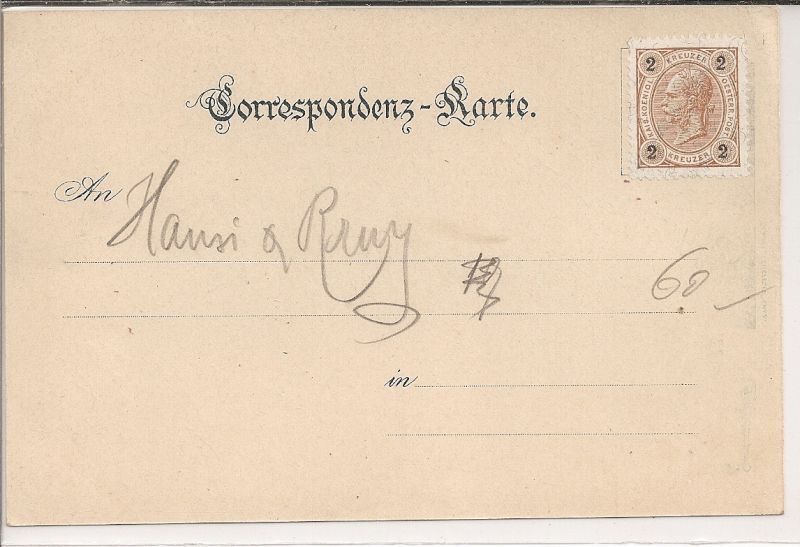 Correspondenz-Karte.
2 KREUZER 2
KAIS. KOENIGL. OESTERR. POST.
2 KREUZER 2
An Hansi &
60-
in